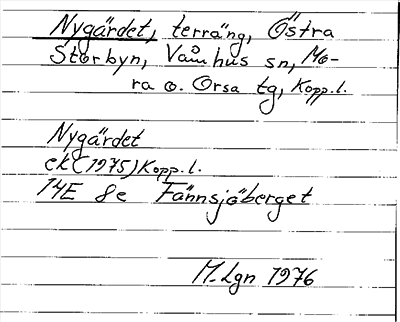 Nygärdet, terräng, Östra
Storbyn, Våmhus sn, Mo-
ra o. Orsa tg, Kopp.l.
Nygärdet
ek (1975) Kopp.l.
14E 8e Fännsjöberget
M-Lgn 1976